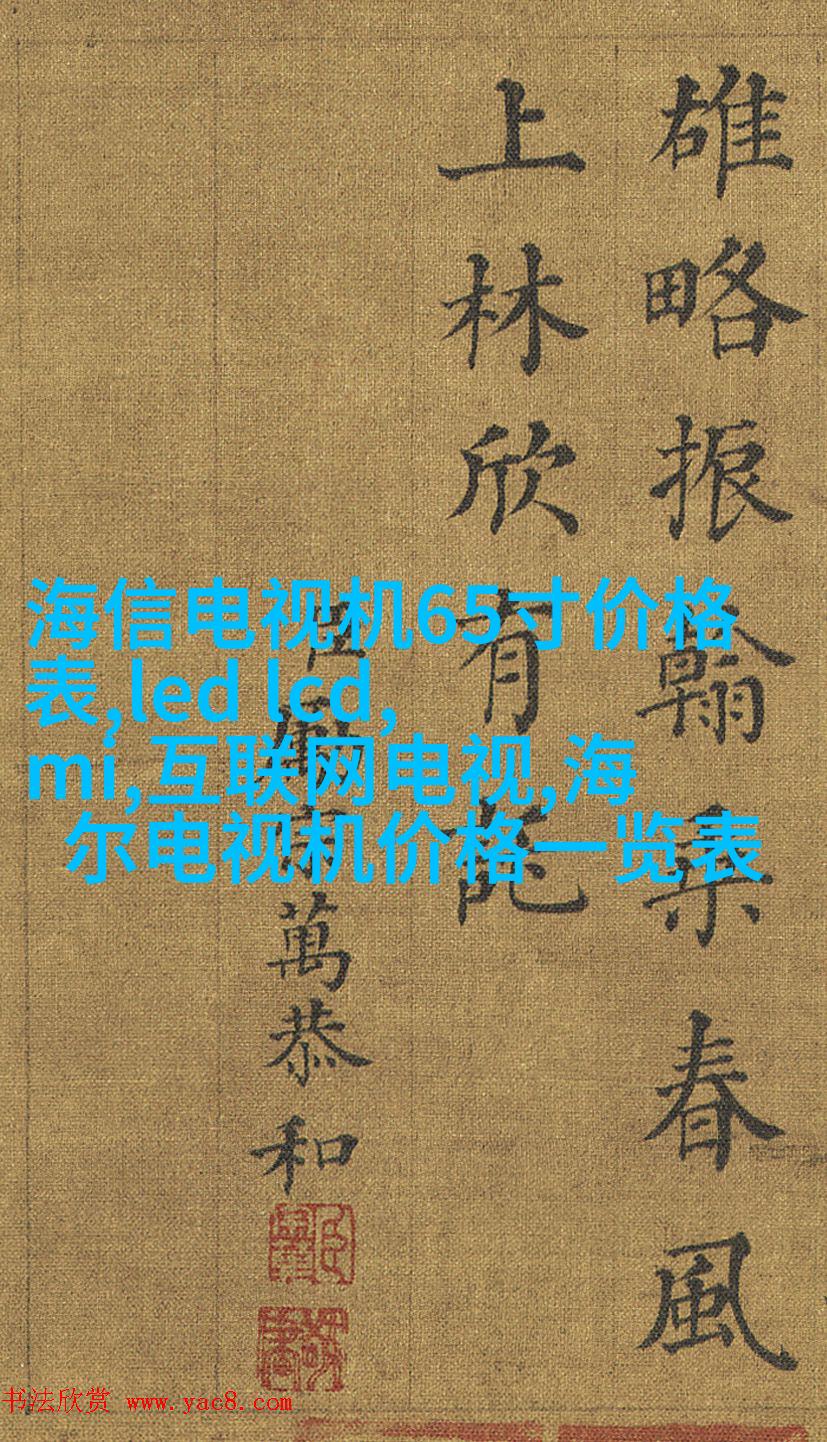 雄略振翰春風
上林欣有託
臣宗萬恭和
海信电视机65寸价格
表,led lcd,
mi,互联网电视,海
尔电视机价格一览表
书法欣赏 www.yac8.com